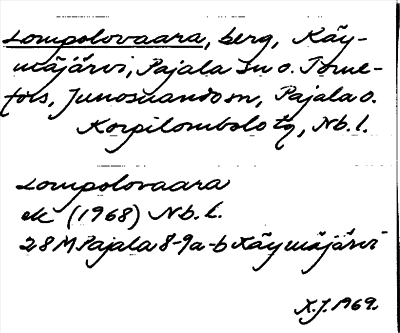 Lompolovaara, berg, Käy-
mäjärvi, Pajala sn o. Torne-
fors, Junosuando sn, Pajala o.
Korpilombolo tg, Nb. l.
Lompolovaara
ek (1968) Nb. l.
28M Pajala 8-9a-b Käymäjärvi
X.J. 1969.